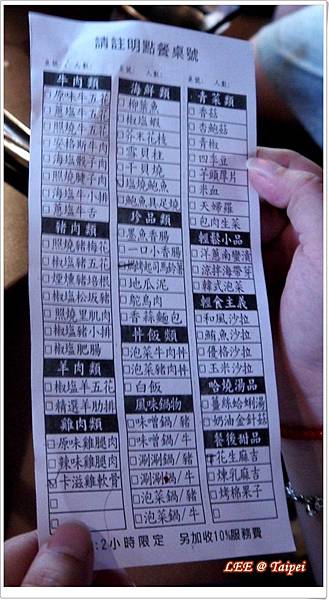 請註明點餐桌號
桌號： 人數：
牛肉類
□原味牛五花
□蔥塩牛五花
□照燒牛五花
□安格斯牛肉
□海塩骰子肉
□照燒腱子肉
□海塩牛小排
□蔥塩牛舌
豬肉類
□照燒豬梅花
□椒塩豬五花
□煙燻豬培根
□椒塩松坂豬
□照燒里肌肉
□椒塩豬小排
□椒塩肥腸
羊肉類
□椒塩羊五花
□精選羊肋排
雞肉類
□原味雞腿肉
□辣味雞腿肉
□卡滋雞軟骨
桌號： 人數：
海鮮類
□柳葉魚
□椒塩蝦
□芥末花枝
□雪貝柱
□干貝燒
□塩燒鮑魚
□鮑魚具足燒
珍品類
□墨魚香腸
□一口小香腸
□地瓜泥
□鴕鳥肉
□香蒜麵包
丼飯類
□泡菜牛肉丼
□泡菜豬肉丼
□白飯
風味鍋物
□味噌鍋/豬
□味噌鍋/牛
□涮涮鍋/豬
□涮涮鍋/牛
□泡菜鍋/豬
□泡菜鍋/牛
桌號： 人數：
青菜類
□香菇
□杏鮑菇
□青椒
□四季豆
□芋頭厚片
□米血
□天婦羅
□包肉生菜
輕鬆小品
□洋蔥南蠻漬
□涼拌海帶芽
□韓式泡菜
輕食主義
□和風沙拉
□鮪魚沙拉
□優格沙拉
□玉米沙拉
哈燒湯品
□薑絲蛤蜊湯
□奶油金針菇
餐後甜品
□花生麻吉
□煉乳麻吉
□烤棉果子
:2小時限定 另加收10%服務費
LEE @ Taipei